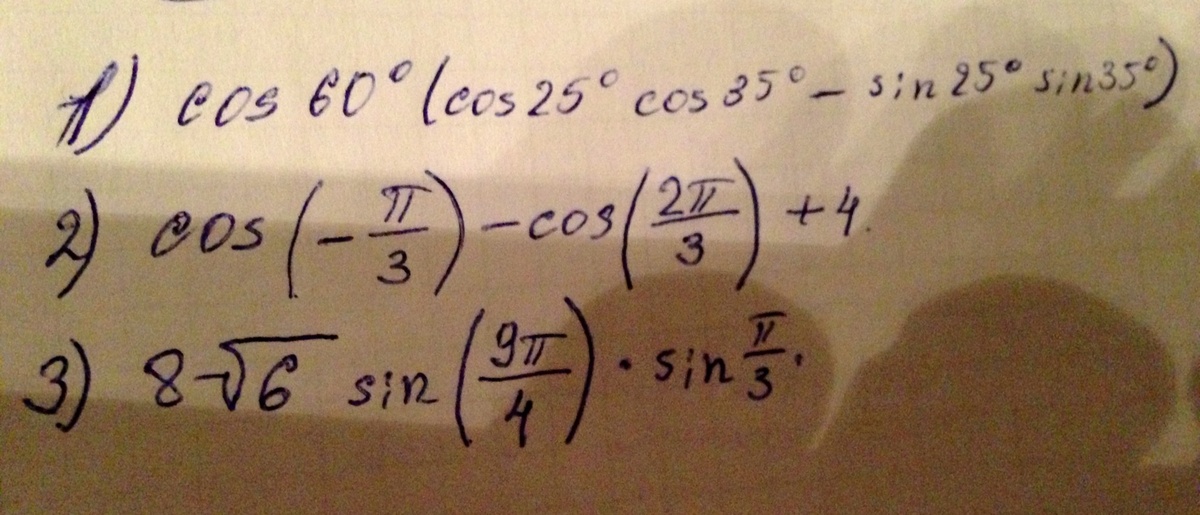 1) cos 60° (cos 25° cos 35° – sin 25° sin 35°)
2) cos (–π/3) – cos (2π/3) + 4.
3) 8√6 sin (9π/4) · sin π/3.